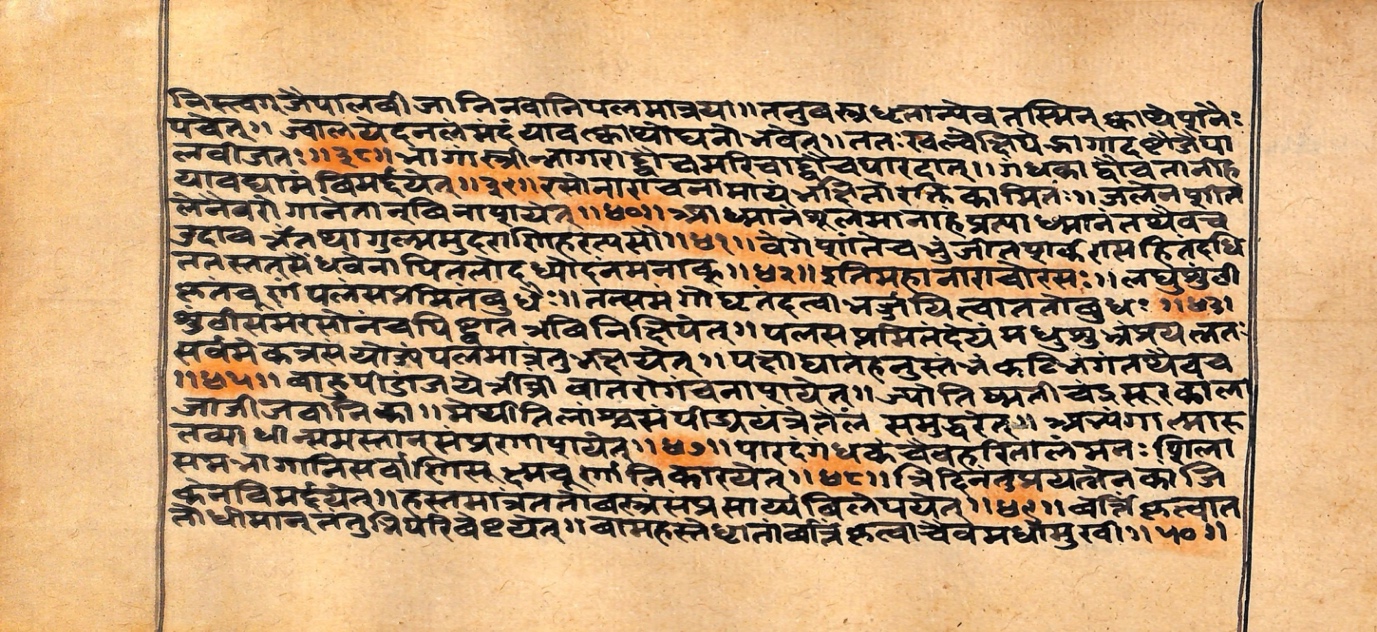 निस्त्वगजैपालवीजानिनवानिपलमात्रया॥तनुवस्त्रधृतान्येवतस्मिन्क्वाथेशनैः
पचेत्॥ज्वालयेदनलंमंदंयावत्क्वाथोघनोभवेत्॥ततःखल्वेक्षिपेद्भागादष्टौजैपा
लवीजतः॥३८॥भागास्त्रीन्नागराद्द्वौचमरिचाद्द्वौचपारदात्॥गंधकाद्द्वौचतानीह
यावद्यामंविमर्द्दयेत्॥३९॥रसोनाराचनामायंभक्षितोरक्तिकामितः॥जलेनशीत
लेनैवरोगानेतान्विनाशयेत्॥४०॥आध्मानंशूलमानाहंप्रत्याध्मानंतथैवच
उदावर्त्तंतथागुल्ममुदराणिहरत्यसौ॥४१॥वेगेशांतेचभुंजीतशर्करासहितंदधि
ततस्तत्सैंधवेनापिततोदध्योदनंमनाक्॥४२॥इतिमहानाराचोरसः॥लघुशुंठी
कृतचूर्णंपलंसप्तमितंबुधैः॥तत्समंगोघृतंदत्वाभर्ज्जयित्वाततोबुधः॥४३॥
शुंठीसमंरसोनंचपिष्ट्वातत्रविनिक्षिपेत्॥पलसप्तमितंदेयंमधुशुभ्रंप्रयत्नतः
सर्वमेकत्रसंयोज्यपलमात्रंतुभक्षयेत्॥पक्षाघातंहनुस्तंभंकटिभंगंतथैवच
॥४५॥बाहुपीडांजयेत्तीव्रांवातरोगंचनाशयेत्॥ज्योतिष्मतीचंद्रसूरकाला
जाजीजवानिका॥मेथीतिलांश्चसंपीड्ययंत्रेतैलंसमुद्धरेत्॥अभ्यंगात्मारु
तव्याधीन्समस्तान्संप्रणाशयेत्॥४७॥पारदंगंधकंचैवहरितालंमनःशिला
समभागानिसर्वाणिसूक्ष्मचूर्णानिकारयेत्॥४८॥त्रिदिनंतुप्रयत्नेनकांजि
केनविमर्द्दयेत्॥हस्तमात्रंततोवस्त्रंसंप्रसार्य्यविलेपयेत्॥४९॥वर्त्तिंकृत्वात
तोधीमान्तंतुभिःपरिवेष्टयेत्॥वामहस्तेधृतांवर्त्तिंकृत्वाचैवमधोमुखीं॥५०॥